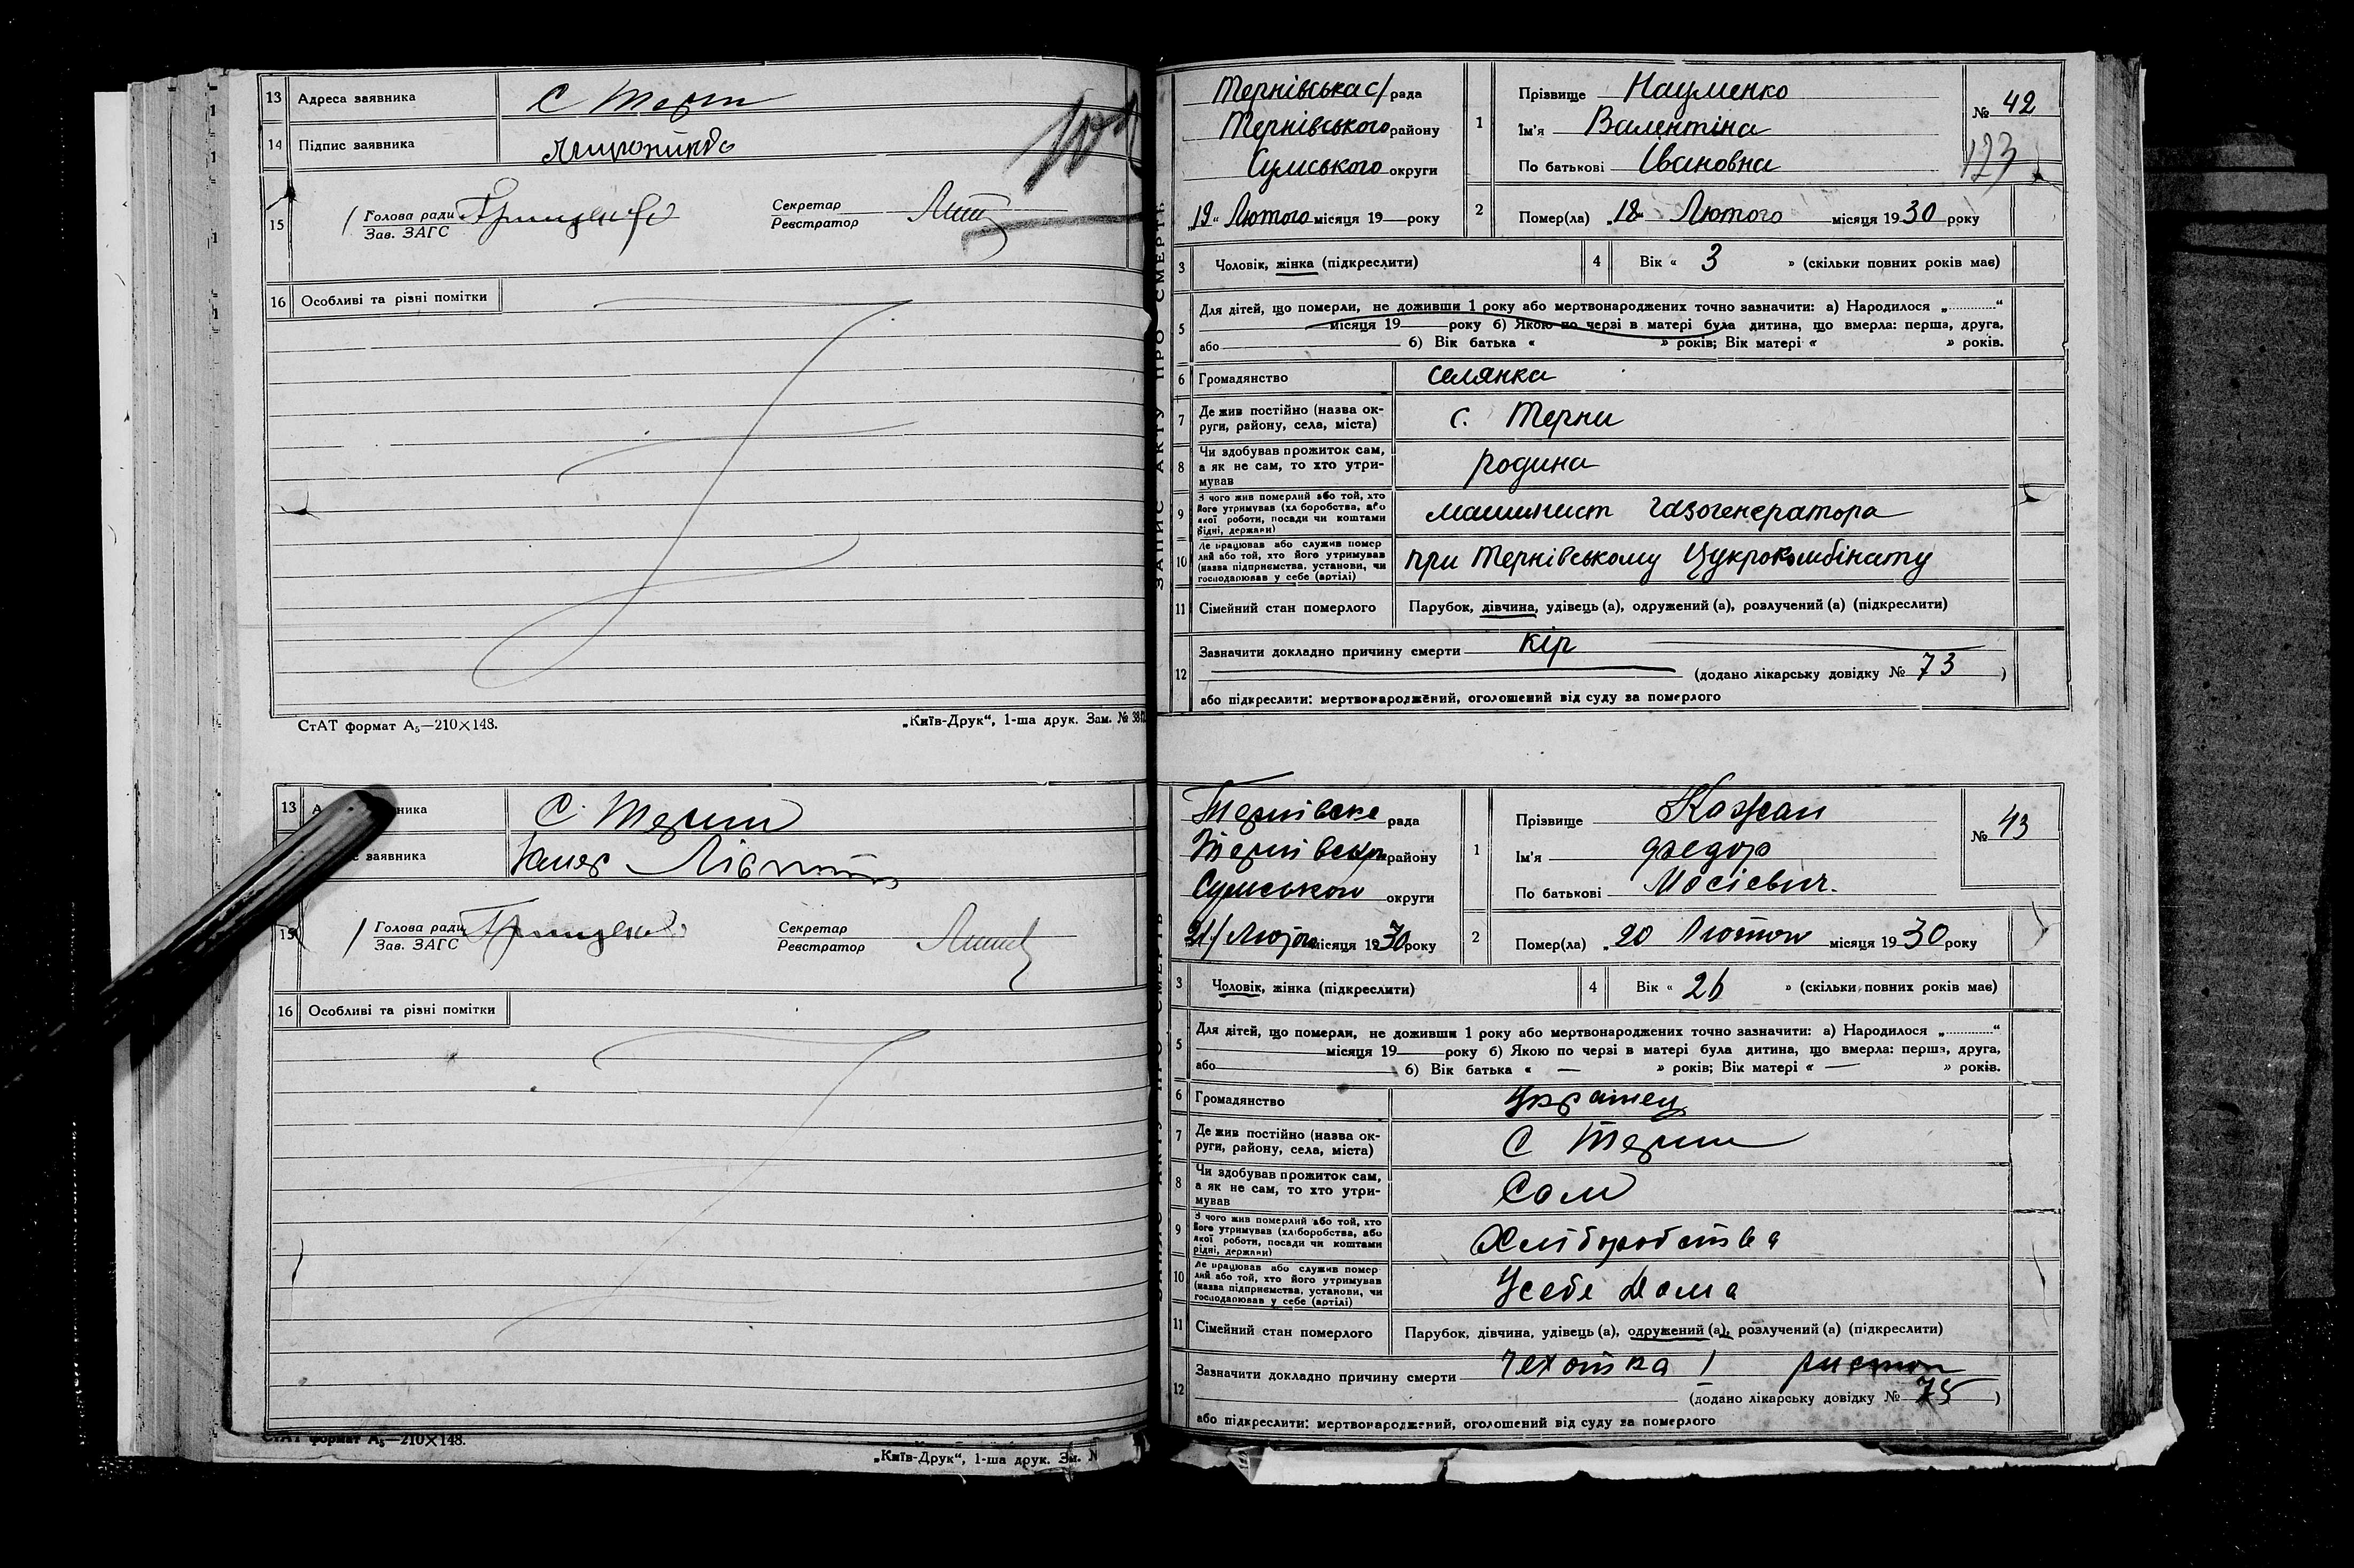 13 Адреса заявника С Терни
14 Підпис заявника
15 Голова ради Секретар
Зав. ЗАГС Реєстратор
16 Особливі та різні помітки
СтАТ формат А5—210×148. „Київ-Друк“, 1-ша друк. Зам. №
13 С. Терни
заявника
15 Голова ради Секретар
Зав. ЗАГС Реєстратор
16 Особливі та різні помітки
СтАТ формат А5—210×148.
„Київ-Друк“, 1-ша друк. Зам. №
ЗАПИС АКТУ ПРО СМЕРТЬ
Тернівська с/рада
Тернівського району
Сумського округи
„19“ Лютого місяця 19 року
1 Прізвище Науменко
Ім'я Валентіна
По батькові Івановна
№ 42
123
2 Помер(ла) „18“ Лютого місяця 1930 року
3 Чоловік, жінка (підкреслити) 4 Вік « 3 » (скільки повних років має)
5 Для дітей, що померли, не доживши 1 року або мертвонароджених точно зазначити: а) Народилося „............“
місяця 19 року б) Якою по черзі в матері була дитина, що вмерла: перша, друга,
або б) Вік батька « » років; Вік матері « » років.
6 Громадянство селянка
7 Де жив постійно (назва ок-
руги, району, села, міста) с. Терни
8 Чи здобував прожиток сам,
а як не сам, то хто утри-
мував родина
9 З чого жив померлий або той, хто
його утримував (хліборобства, або
якої роботи, посади чи коштами
рідні, держави) машинист газогенератора
10 Де працював або служив помер
лий або той, хто його утримував
(назва підприємства, установи, чи
господарював у себе (артілі) при Тернівському Цукрокомбінату
11 Сімейний стан померлого Парубок, дівчина, удівець (а), одружений (а), розлучений (а) (підкреслити)
12 Зазначити докладно причину смерти кір
(додано лікарську довідку № 73 )
або підкреслити: мертвонароджений, оголошений від суду за померлого
Тернівске рада
району
Сумського округи
21/ місяця 1930 року
1 Прізвище Кажан
Ім'я Федор
По батькові Мосієвич.
№ 43
2 Помер(ла) „20 Лютого місяця 1930 року
3 Чоловік, жінка (підкреслити) 4 Вік « 26 » (скільки повних років має)
5 Для дітей, що померли, не доживши 1 року або мертвонароджених точно зазначити: а) Народилося „............“
місяця 19 року б) Якою по черзі в матері була дитина, що вмерла: перша, друга,
або б) Вік батька « — » років; Вік матері « — » років.
6 Громадянство
7 Де жив постійно (назва ок-
руги, району, села, міста) С Терни
8 Чи здобував прожиток сам,
а як не сам, то хто утри-
мував Сам
9 З чого жив померлий або той, хто
його утримував (хліборобства, або
якої роботи, посади чи коштами
рідні, держави) Хліборобства
10 Де працював або служив помер
лий або той, хто його утримував
(назва підприємства, установи, чи
господарював у себе (артілі) Усебе Дома
11 Сімейний стан померлого Парубок, дівчина, удівець (а), одружений (а), розлучений (а) (підкреслити)
12 Зазначити докладно причину смерти чехотка
(додано лікарську довідку № 75 )
або підкреслити: мертвонароджений, оголошений від суду за померлого